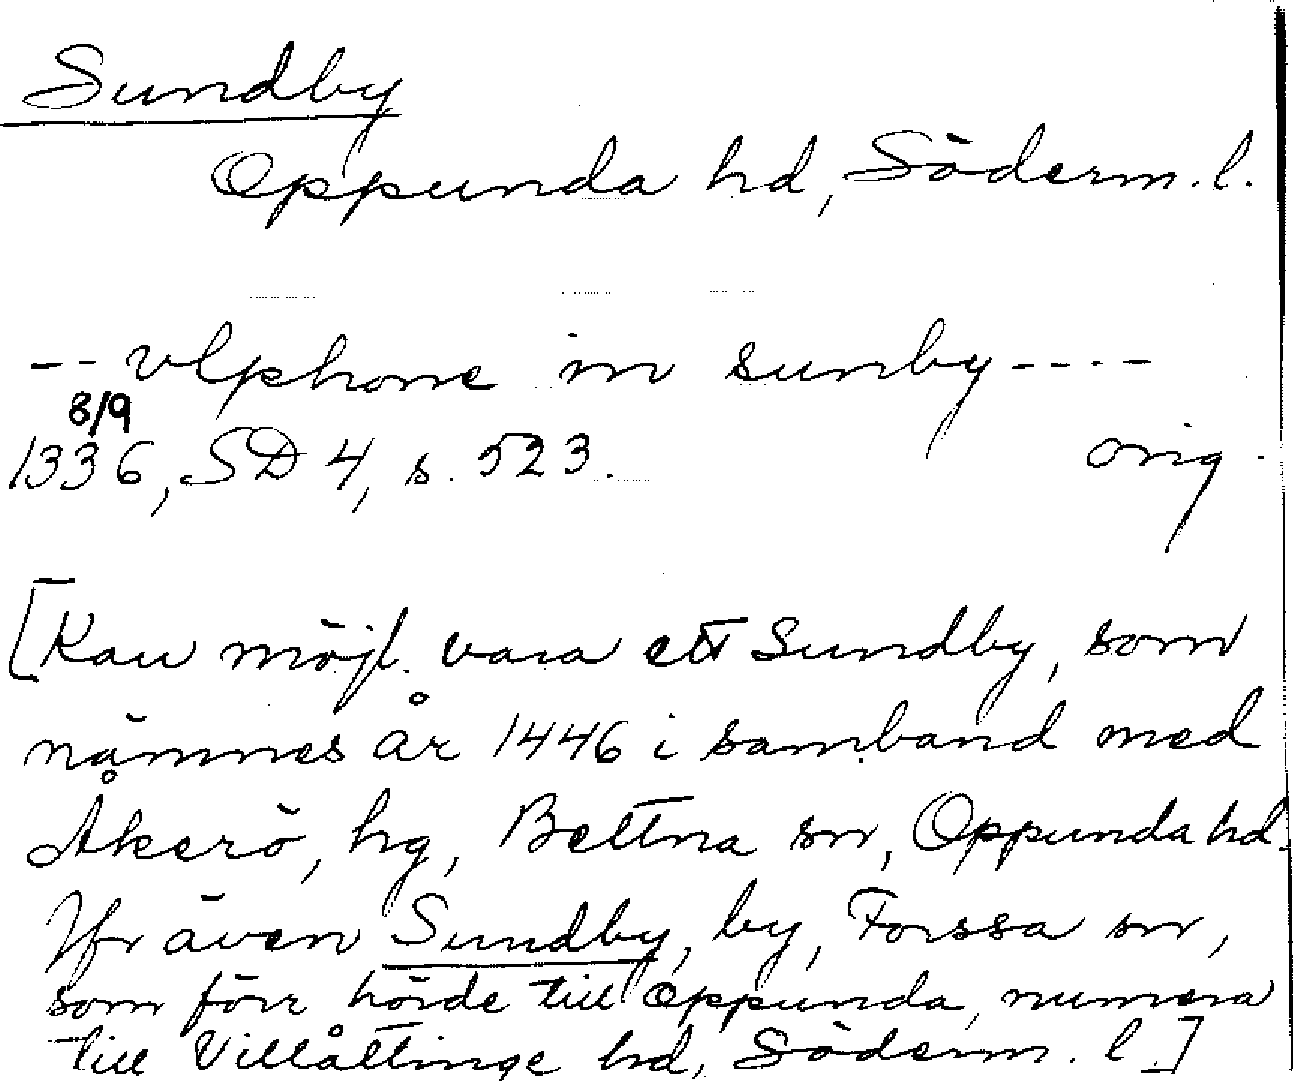 Sundby
Oppunda hd, Söderm. l.
-- vlphone in sunby ----
8/9
1336, SD 4, s. 523. orig.
[Kan möjl. vara ett Sundby, som
nämnes år 1446 i samband med
Åkerö, hg, Bettna sn, Oppunda hd.
Jfr även Sundby, by, Forssa sn,
som förr hörde till Oppunda, numera
till Villåttinge hd, Söderm. l.]